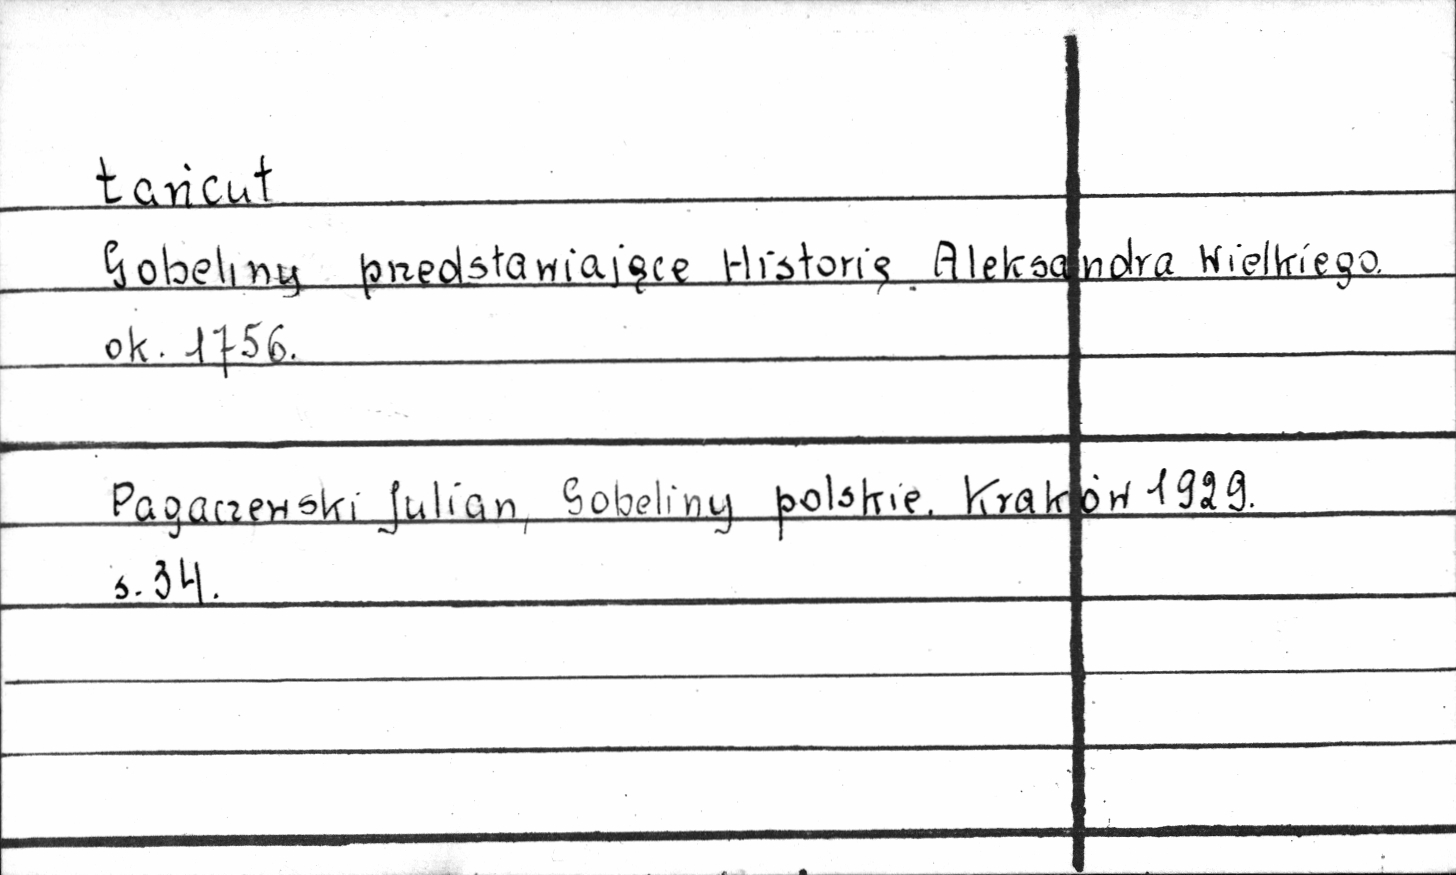 Łańcut
Gobeliny przedstawiające Historię Aleksandra Wielkiego.
ok. 1756.
Pagaczewski Julian, Gobeliny polskie. Kraków 1929.
s. 34.